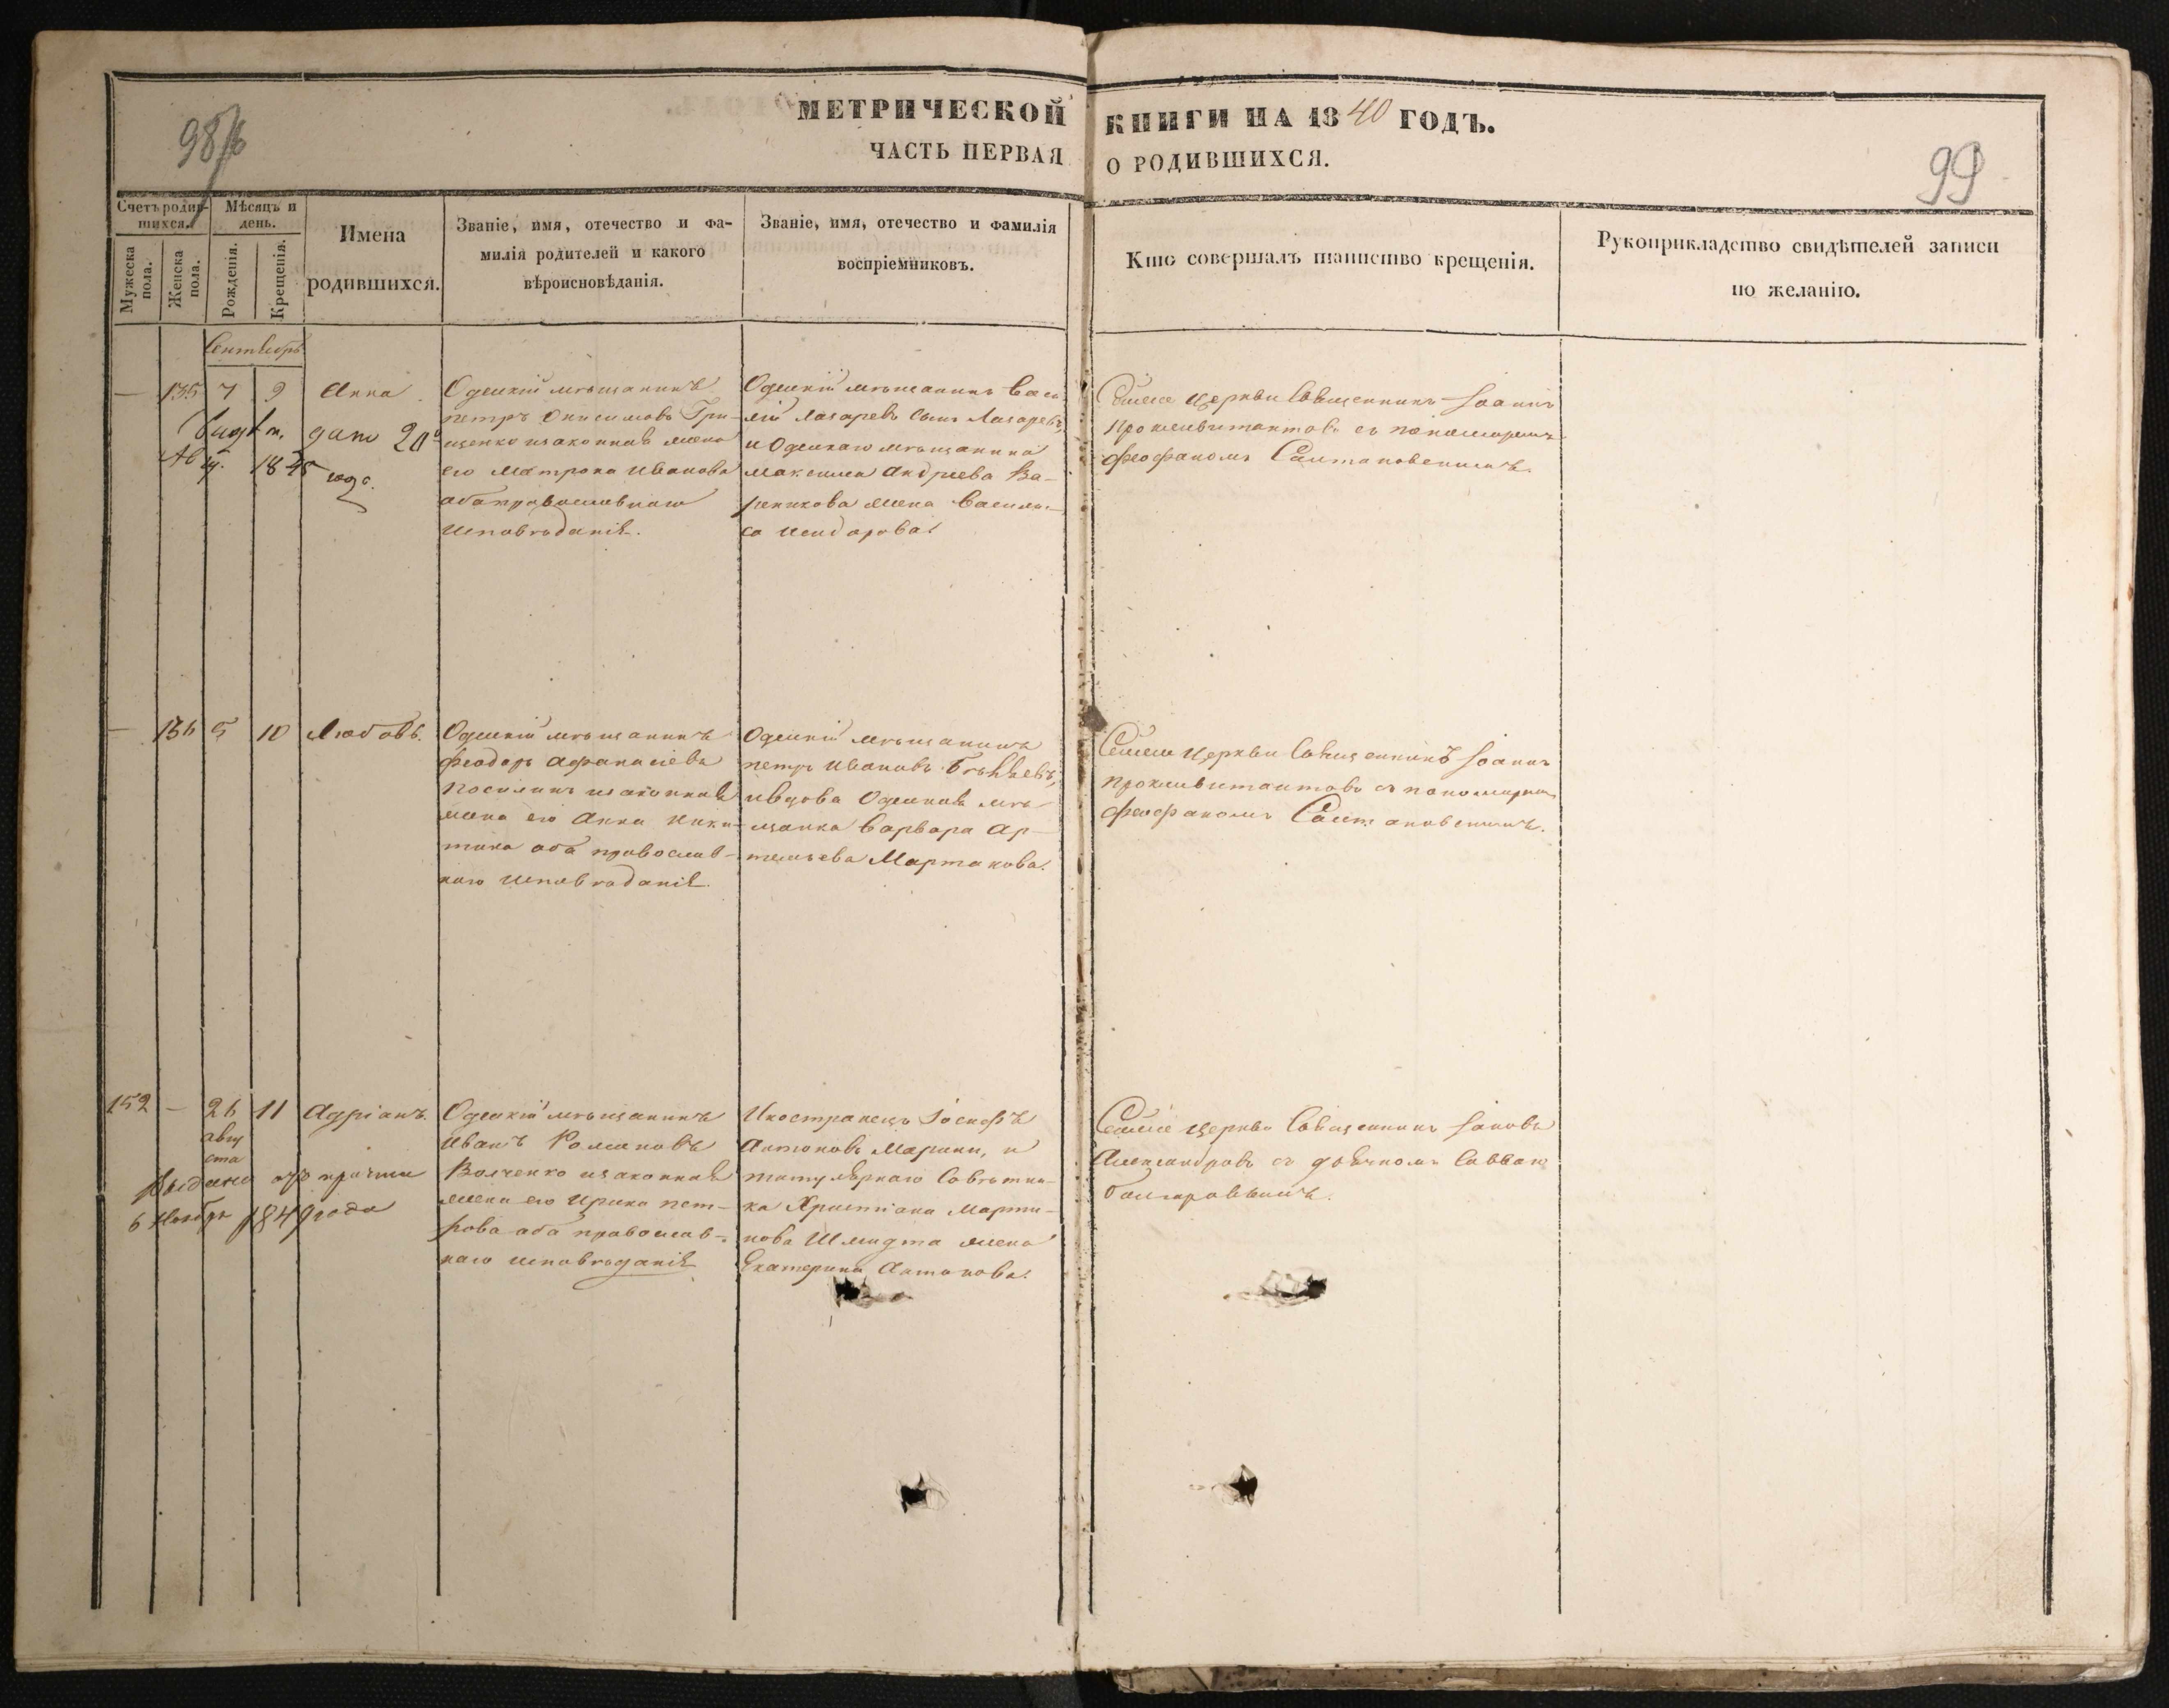 98/б
МЕТРИЧЕСКОЙ КНИГИ НА 1840 ГОДЪ.
ЧАСТЬ ПЕРВАЯ О РОДИВШИХСЯ.
99
Счетъ родив-
шихся.
Мужеска пола.
Женска пола.
Мѣсяцъ и
день.
Рожденія.
Крещенія.
Имена
родившихся.
Званіе, имя, отечество и фа-
милія родителей и какого
вѣроисповѣданія.
Званіе, имя, отечество и фамилія
воспріемниковъ.
Кто совершалъ таинство крещенія.
Рукоприкладство свидѣтелей записи
по желанію.
Сентябрь
— 135 7 9 Анна
дано 20
1845 года.
Одескій мѣщанинъ
петръ Онисимовъ Гри-
щенко изаконная жена
его Матрона Иванова
оба православнаго
Исповѣданія.
Одескій мѣщанинъ Васи
лій Лазаревъ сынъ Лазаревъ,
и Одескаго мѣщанина
Максима Андреева Ва-
реникова жена Васили-
са Исидорова.
Сея церкви Священникъ Іоаннъ
съ пономаремъ
феофаномъ
— 136 5 10 Любовь.
Одескій мѣщанинъ
феодоръ Афанасіевъ
изаконная
жена его Анна Ники-
тина оба православ-
наго Исповѣданія.
Одескій мѣщанинъ
петръ Ивановъ
ивдова Одеская мѣ-
щанка Варвара Ар-
темьева Мартакова.
Сея Церкви Священникъ Іоаннъ
съ пономаремъ
феофаномъ
152 — 26 11 Адріанъ.
авгу
ста
Выдана
6 Ноября 1849 года
Одескій мѣщанинъ
Иванъ Романовъ
Волченко изаконная
жена его Ирина пет-
рова оба православ-
наго исповѣданія
Иностранецъ Іосифъ
Антоновъ Марини, и
титулярнаго Совѣтни-
ка Христіана Марти-
нова Шмидта жена
Екатерина Антонова.
Сея церкви Священникъ Іаковъ
Александровъ съ дьячкомъ Саввою